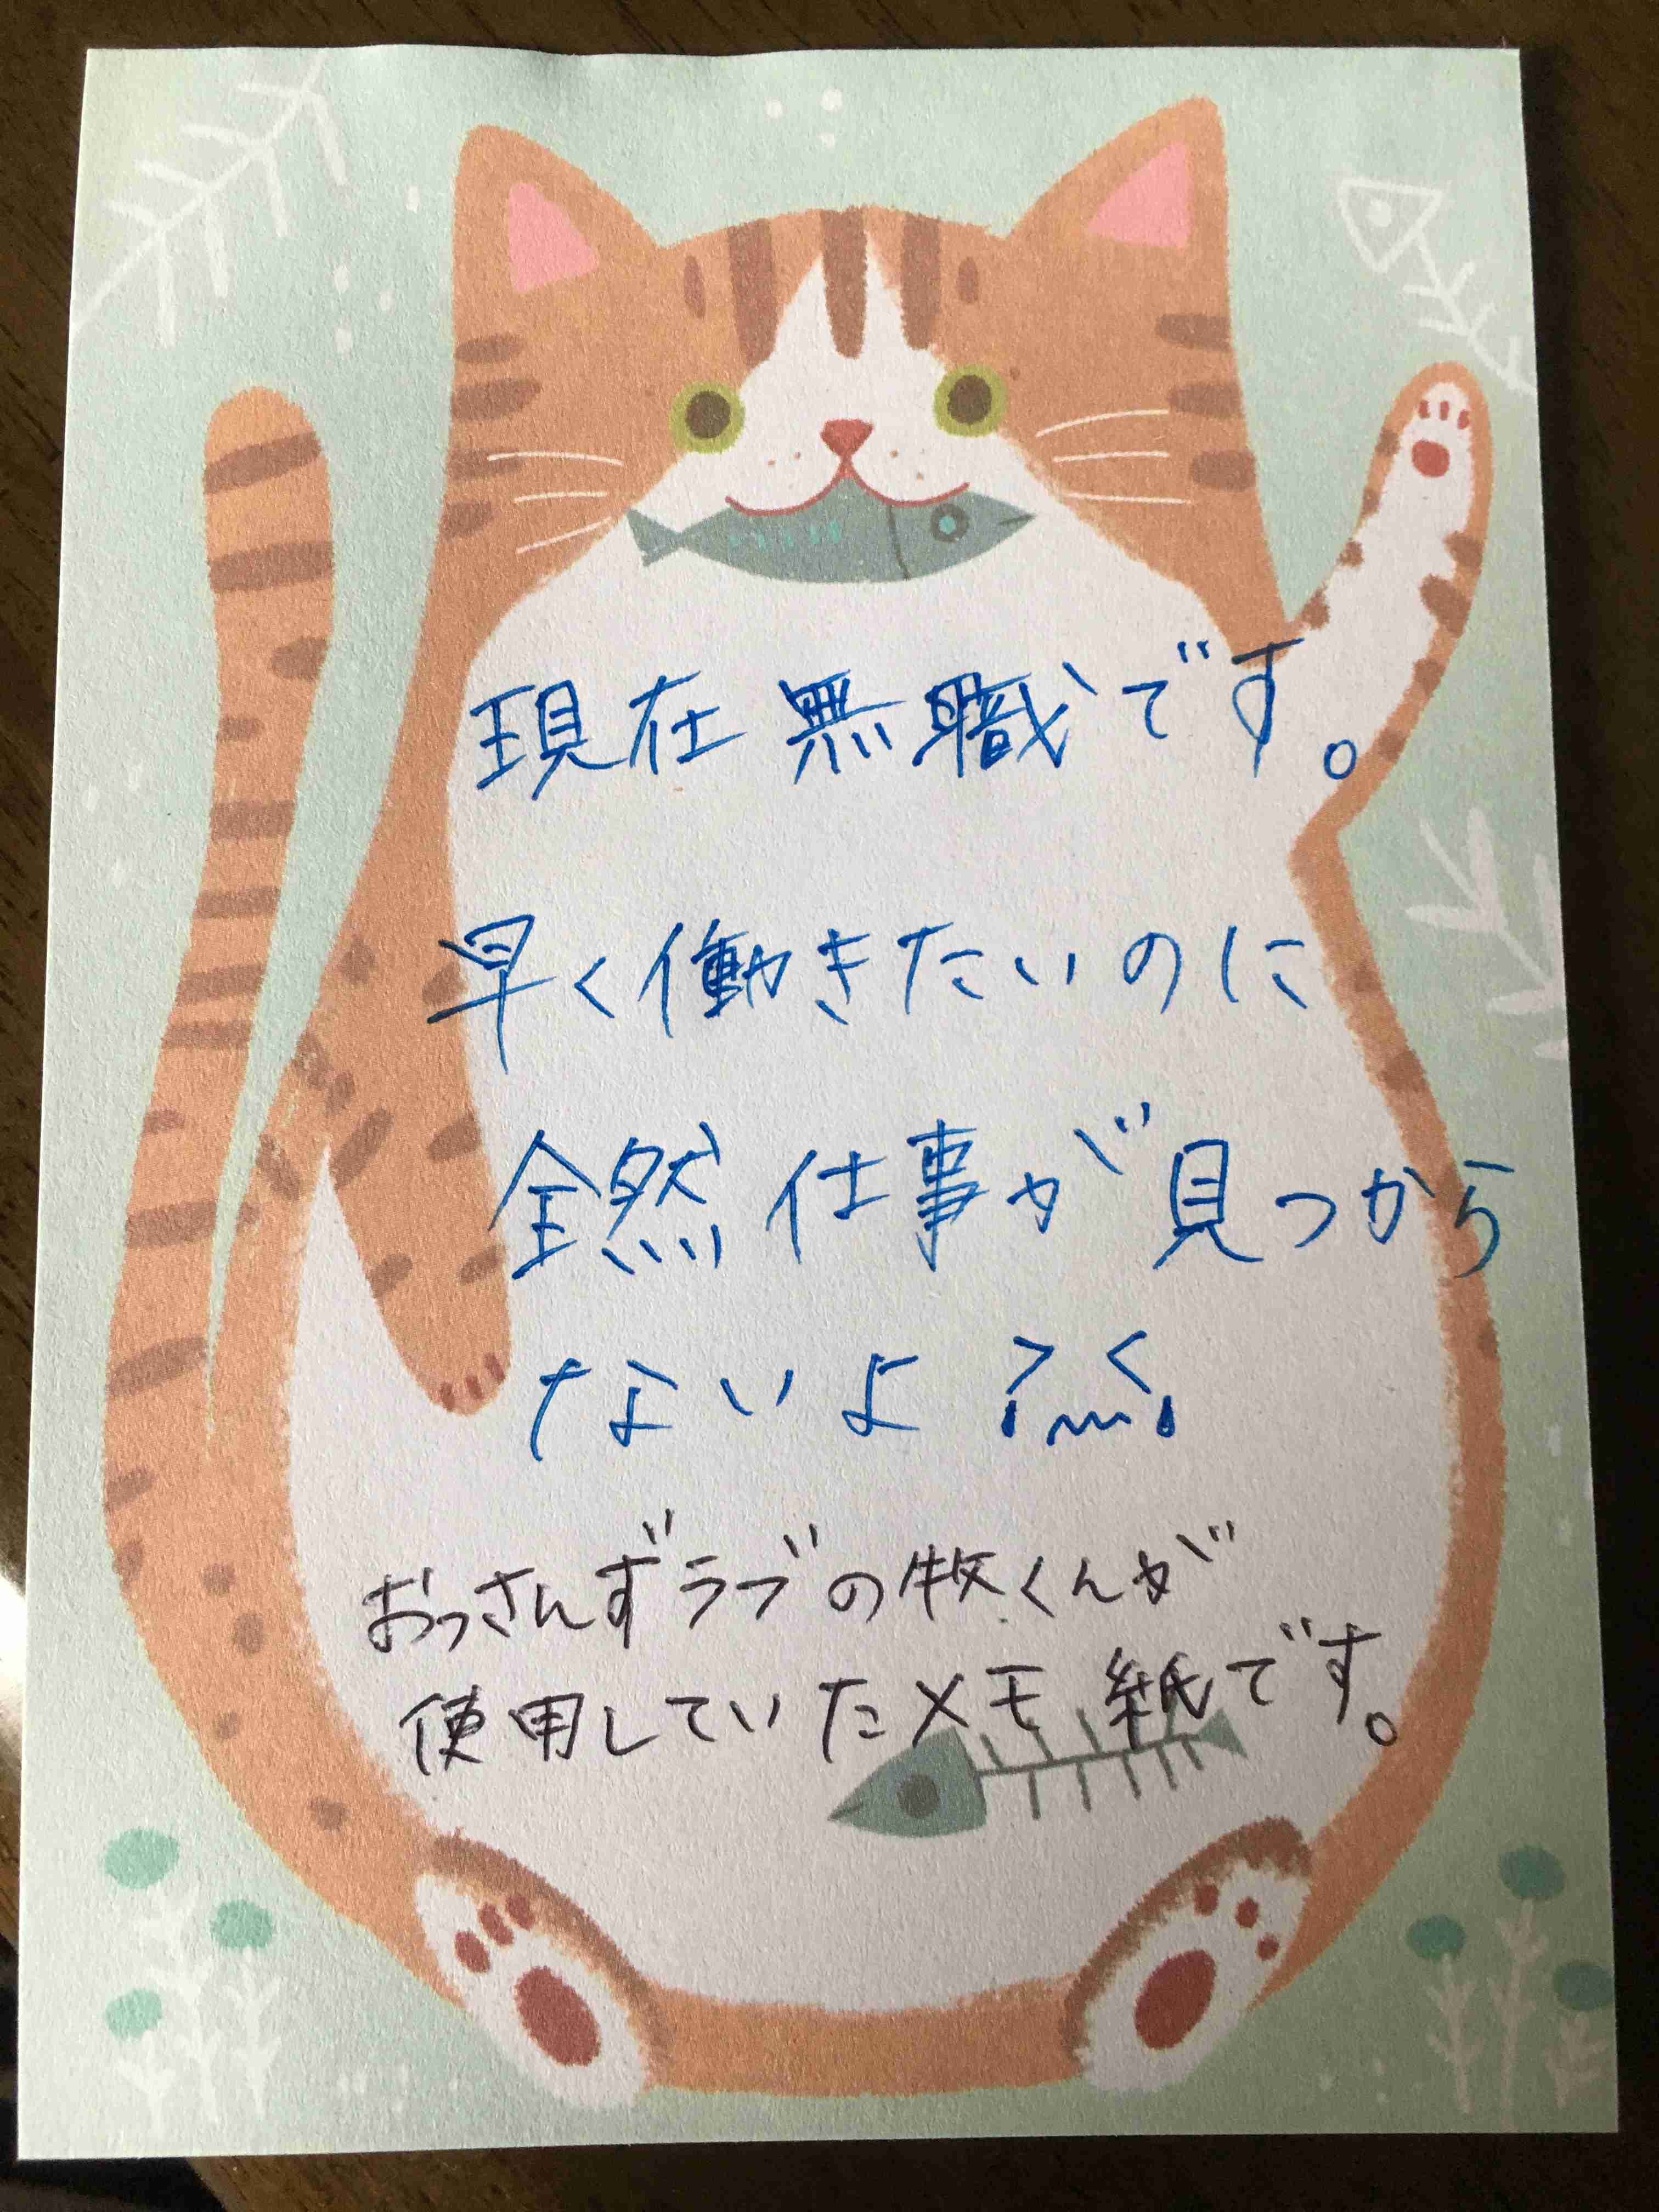 現在無職です。
早く働きたいのに
全然仕事が見つから
ないよ
おっさんずラブの牧くんが
使用していたメモ紙です。